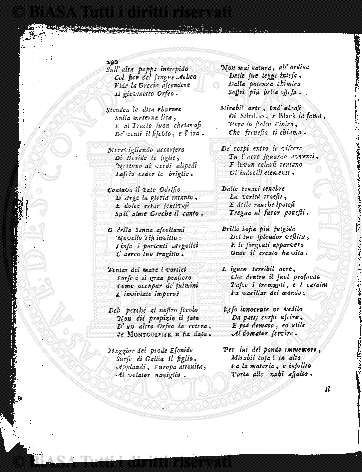 © BiASA Tutti i diritti riservati
292
Sull' alta poppa intrepido
Col fior del sangue Acheo
Vide la Grecia ascendere
Il giovinetto Orfeo.
Stendea le dita eburnee
Sulla materna lira;
E al Tracio suon chetavasi
De' venti il fischio, e l' ira.
Meravigliando accorsero
Di Doride le figlie;
Nettuno ai verdi alipedi
Lasciò cader le briglie.
Cantava il Vate Odrisio
D' Argo la gloria intanto,
E dolce errar sentivasi
Sull' alme Greche il canto.
O della Senna ascoltami
Novello Tifi invitto:
Vinse i portenti Argolici
L' aereo tuo tragitto.
Tentar del mare i vortici
Forse è sì gran pensiero
Come occupar de' fulmini
L' inviolato impero?
Deh perchè al nostro secolo
Non diè propizio il fato
D' un altro Orfeo la cetera,
Se MONTGOLFIER n' ha dato.
Maggior del prode Esonide
Surse di Gallia il figlio.
Applaudi, Europa attonita,
Al volator naviglio.
Non mai natura, all' ordine
Delle sue leggi intesa,
Dalla potenza chimica
Soffrì più bella offesa.
Mirabil arte, ond' alzasi
Di Sthallio, e Black la fama,
Che frenesia ti chiama.
De' corpi entro le viscere
Tu l' acre sguardo avventi,
E invan celarsi tentano
Gl' indocili elementi.
Dalle tenaci tenebre
La verità traesti,
E delle rauche Ipotesi
Tregua al furor ponesti.
Brillò Sofia più fulgida
Del tuo splendor vestita,
E le sorgenti apparvero
Onde il creato ha vita.
L' igneo terribil aere,
Che dentro il suol profondo
Pasce i tremuoti, e i cardini
Fa vacillar del mondo;
Reso innocente or vedilo
Da' marj corpi uscire,
E già domato, ed utile
Al domator servire.
Per lui del pondo immemore,
Mirabil cosa! in alto
Va la materia, e insolito
Porta alle nubi assalto.
© BiASA Tutti i diritti riservati